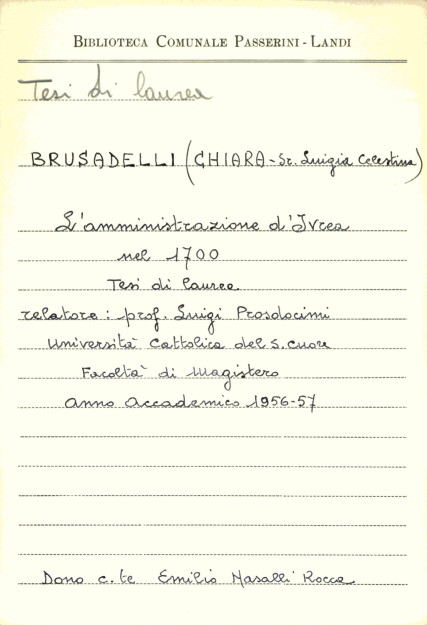 BIBLIOTECA COMUNALE PASSERINI-LANDI
Tesi di laurea
BRUSADELLI (CHIARA-Sr. Luigia Celestina)
L'amministrazione d'Ivrea
nel 1700
Tesi di laurea
relatore: prof. Luigi Prosdocimi
Università Cattolica del S. Cuore
Facoltà di Magistero
Anno Accademico 1956-57
Dono c.te Emilio Nasalli Rocca